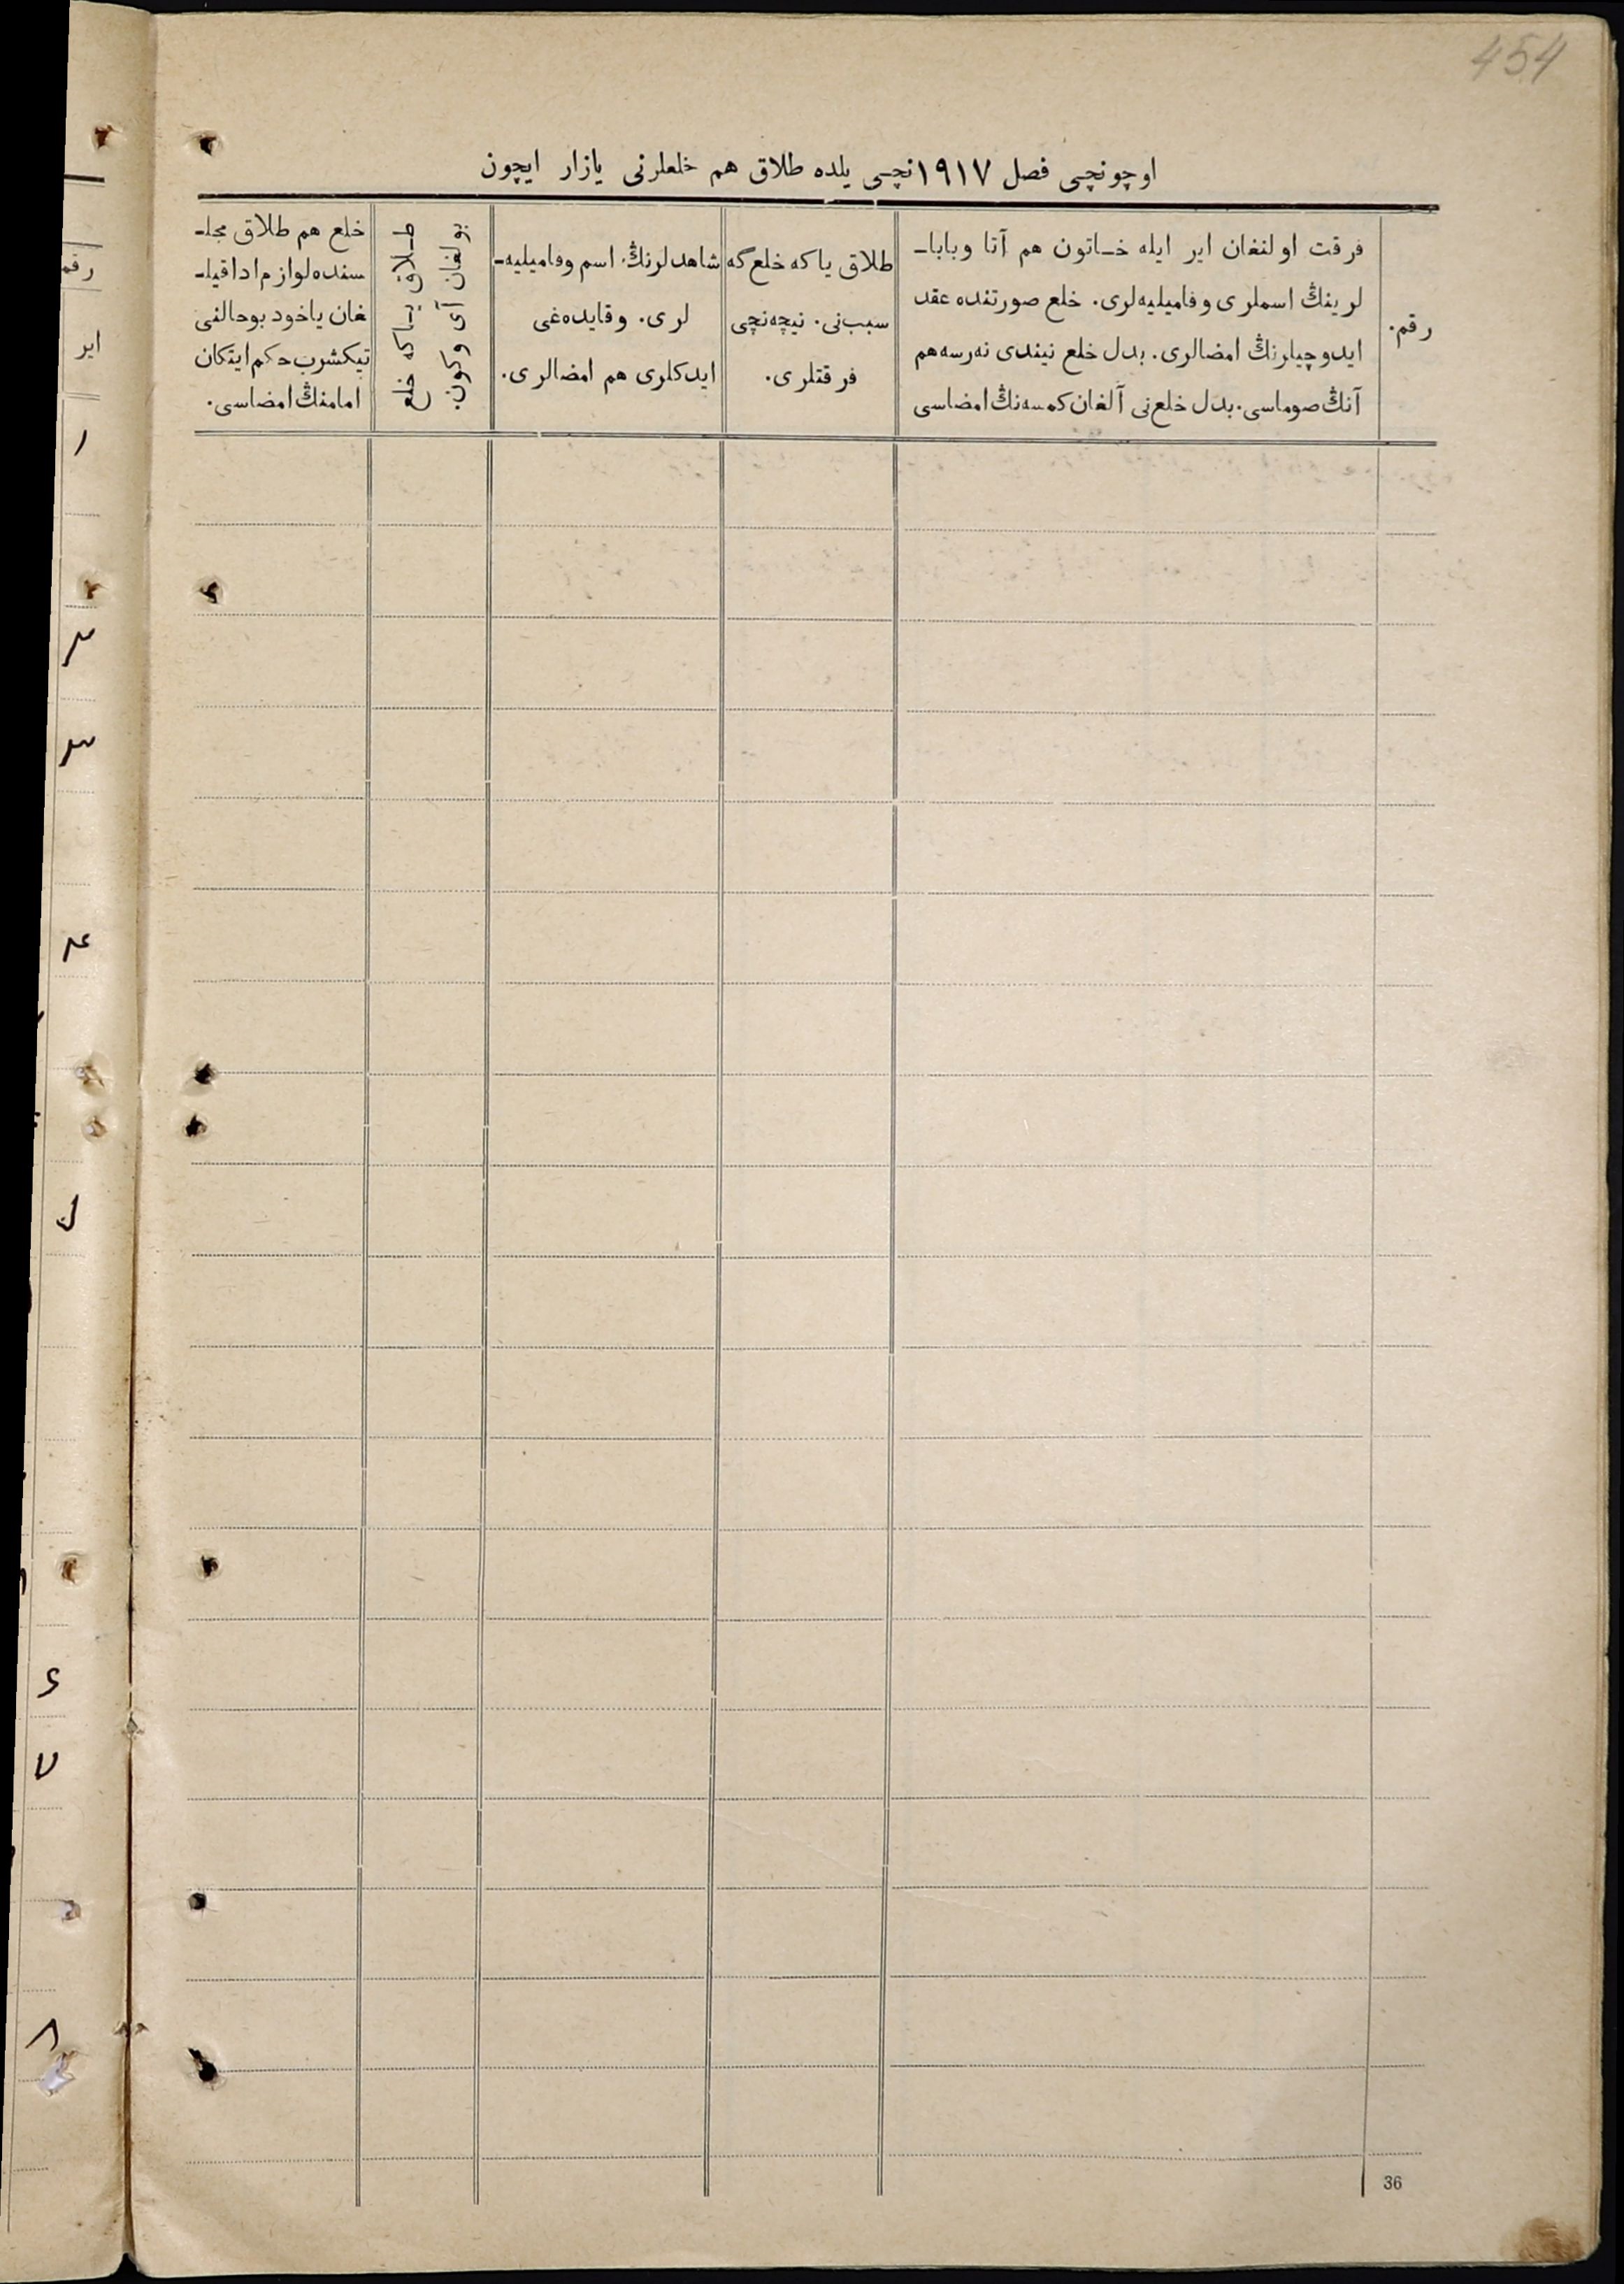 454
اوچونچی فصل ١٩١٧نچی یلده طلاق هم خلعلرنی یازار ایچون
رقم.
فرقت اولنغان ایر ایله خـاتون هم آتا وبابا-
لرینڭ اسملری وفامیلیه‌لری. خلع صورتنده عقد
ایدوچیلرنڭ امضالری. بدل خلع نیندی نه‌رسه هم
آنڭ صوماسی. بدل خلع‌نی آلغان کمسه‌نڭ امضاسی
طلاق یا که خلع گه
سبب‌نی. نیچه‌نچی
فرقتلری.
شاهدلرنڭ اسم وفامیلیه-
لری. وقایده‌غی
ایدکلری هم امضالری.
طـلاق یـاکه خلع
بولغان آی وکون.
خلع هم طلاق مجلـ
سنده لوازم ادا قیلـ
غان یاخود بو حالنی
تیکشرب حکم ایتکان
امامنڭ امضاسی.
36
رقم
ایر
١
٢
٣
٤
٥
٦
٧
٨